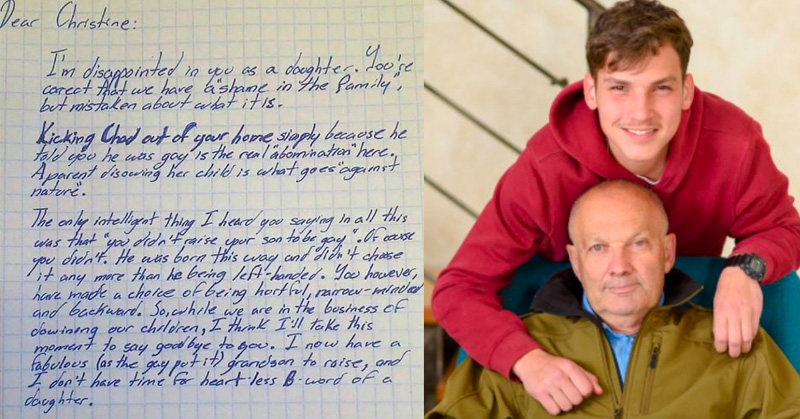 Dear Christine:
I'm disappointed in you as a daughter. You're
corect that we have a "shame in the family",
but mistaken about what it is.
Kicking Chad out of your home simply because he
told you he was gay is the real "abomination" here.
A parent disowing her child is what goes "against
nature".
The only intelligent thing I heard you saying in all this
was that "you didn't raise your son to be gay". Of course
you didn't. He was born this way and didn't choose
it any more than he being left-handed. You however,
have made a choice of being hurtful, narrow-minded
and backward. So, while we are in the business of
downing our children, I think I'll take this
moment to say goodbye to you. I now have a
fabulous (as the gay put it) grandson to raise, and
I don't have time for heart-less B-word of a
daughter.